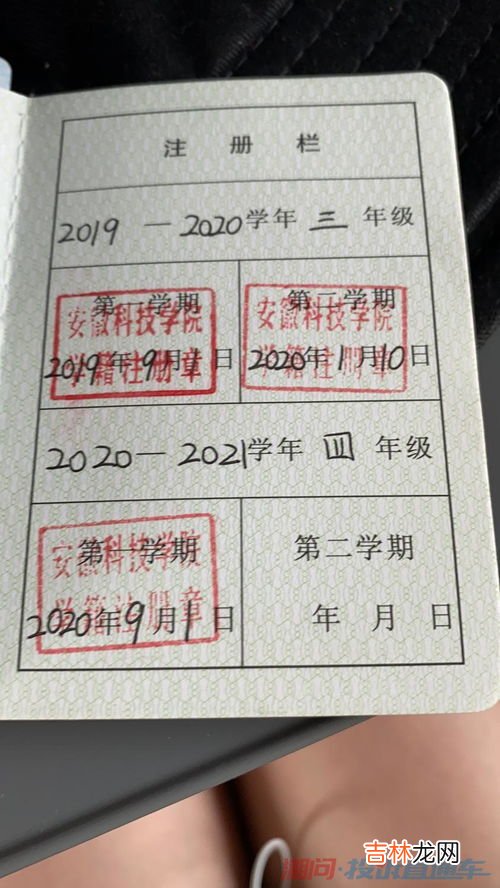 注册栏
2019 — 2020学年 三 年级
第一学期
安徽科技学院
学籍注册章
2019年9月1日
第二学期
安徽科技学院
学籍注册章
2020年1月10日
2020 — 2021学年 四 年级
第一学期
安徽科技学院
学籍注册章
2020年9月1日
第二学期
年 月 日
湘问·投诉直通车
吉林龙网